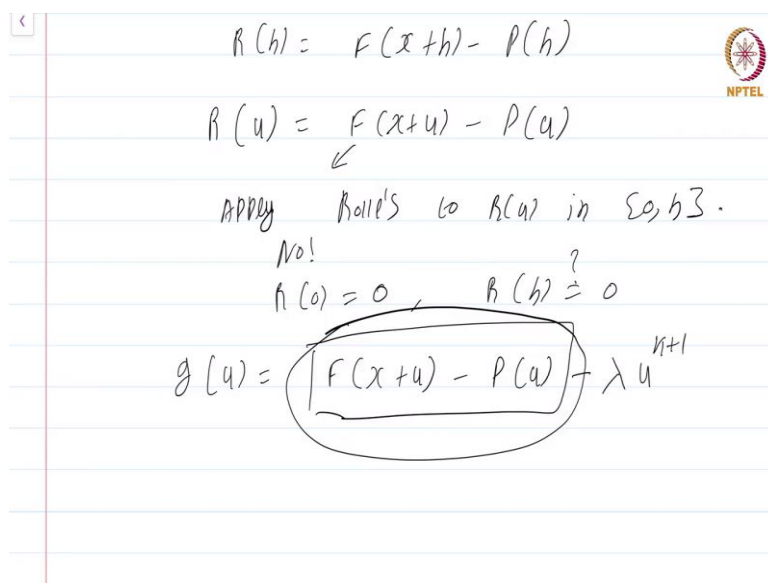 R(h) = F(x+h) - P(h)
NPTEL
R(u) = F(x+u) - P(u)
APPly Rolle's to R(u) in [0,h].
No!
R(0) = 0, R(h) ?= 0
g(u) = F(x+u) - P(u) - λu^{n+1}